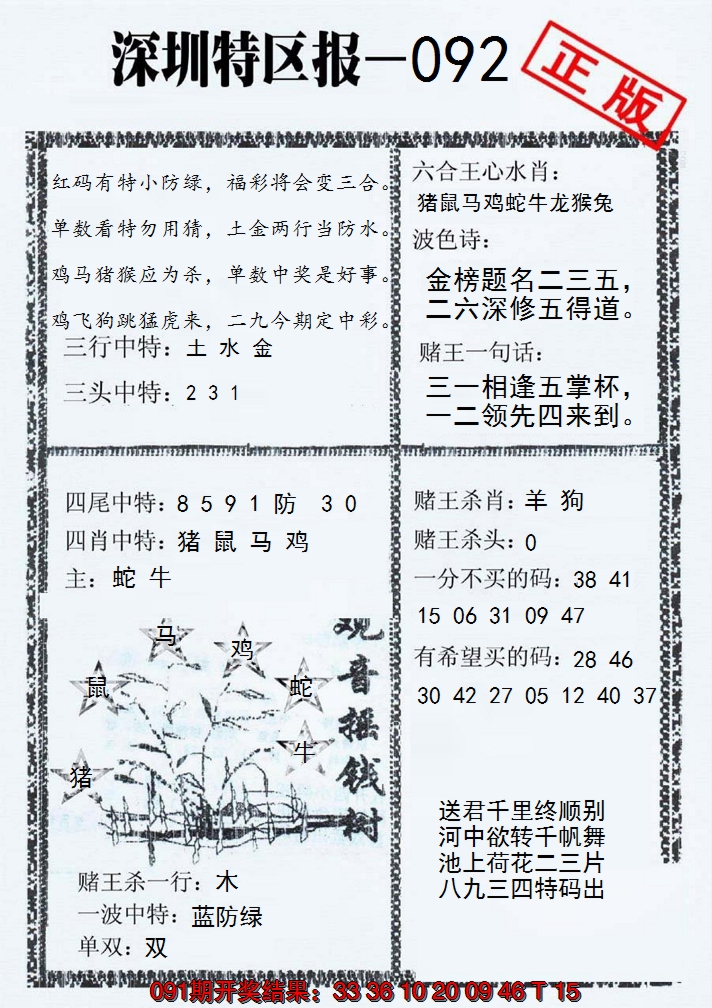 深圳特区报—092
正版
红码有特小防绿，福彩将会变三合。
单数看特勿用猜，土金两行当防水。
鸡马猪猴应为杀，单数中奖是好事。
鸡飞狗跳猛虎来，二九今期定中彩。
三行中特：土 水 金
三头中特：2 3 1
六合王心水肖：
猪鼠马鸡蛇牛龙猴兔
波色诗：
金榜题名二三五，
二六深修五得道。
赌王一句话：
三一相逢五掌杯，
一二领先四来到。
四尾中特：8 5 9 1 防 3 0
四肖中特：猪 鼠 马 鸡
主：蛇 牛
观音摇钱树
马
鸡
鼠
蛇
牛
猪
赌王杀一行：木
一波中特：蓝防绿
单双：双
赌王杀肖：羊 狗
赌王杀头：0
一分不买的码：38 41
15 06 31 09 47
有希望买的码：28 46
30 42 27 05 12 40 37
送君千里终顺别
河中欲转千帆舞
池上荷花二三片
八九三四特码出
091期开奖结果：33 36 10 20 09 46 T 15